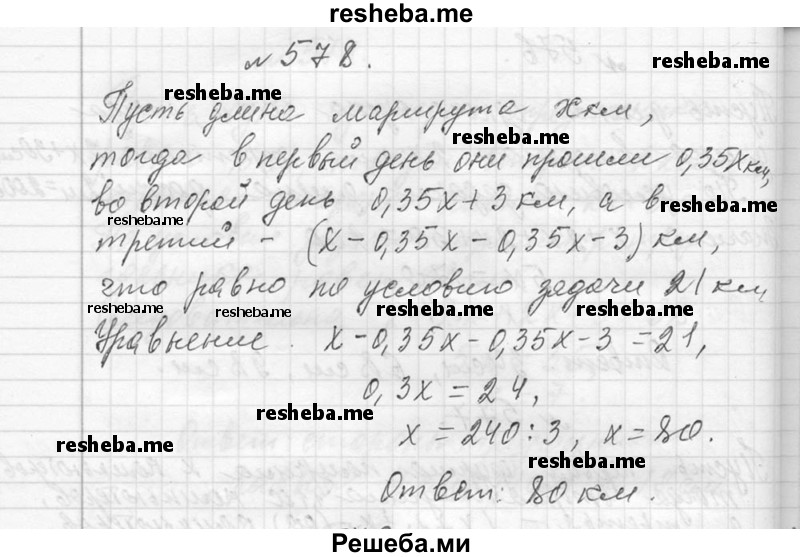 resheba.me
№ 578.
resheba.me
resheba.me
Пусть длина маршрута x км,
resheba.me
тогда в первый день они прошли 0,35x км,
во второй день 0,35x + 3 км, а в
resheba.me
третий - (x - 0,35x - 0,35x - 3) км,
что равно по условию задачи 21 км
resheba.me resheba.me resheba.me resheba.me
Уравнение. x - 0,35x - 0,35x - 3 = 21,
0,3x = 24,
resheba.me
x = 240 : 3, x = 80.
resheba.me
resheba.me
Ответ: 80 км.
Решеба.ми